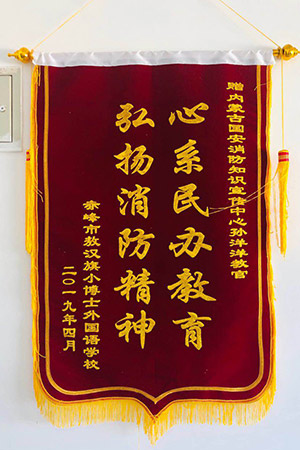 赠内蒙古国安消防知识宣传中心孙洋洋教官
心系民办教育
弘扬消防精神
赤峰市敖汉旗小博士外国语学校
二〇一九年四月